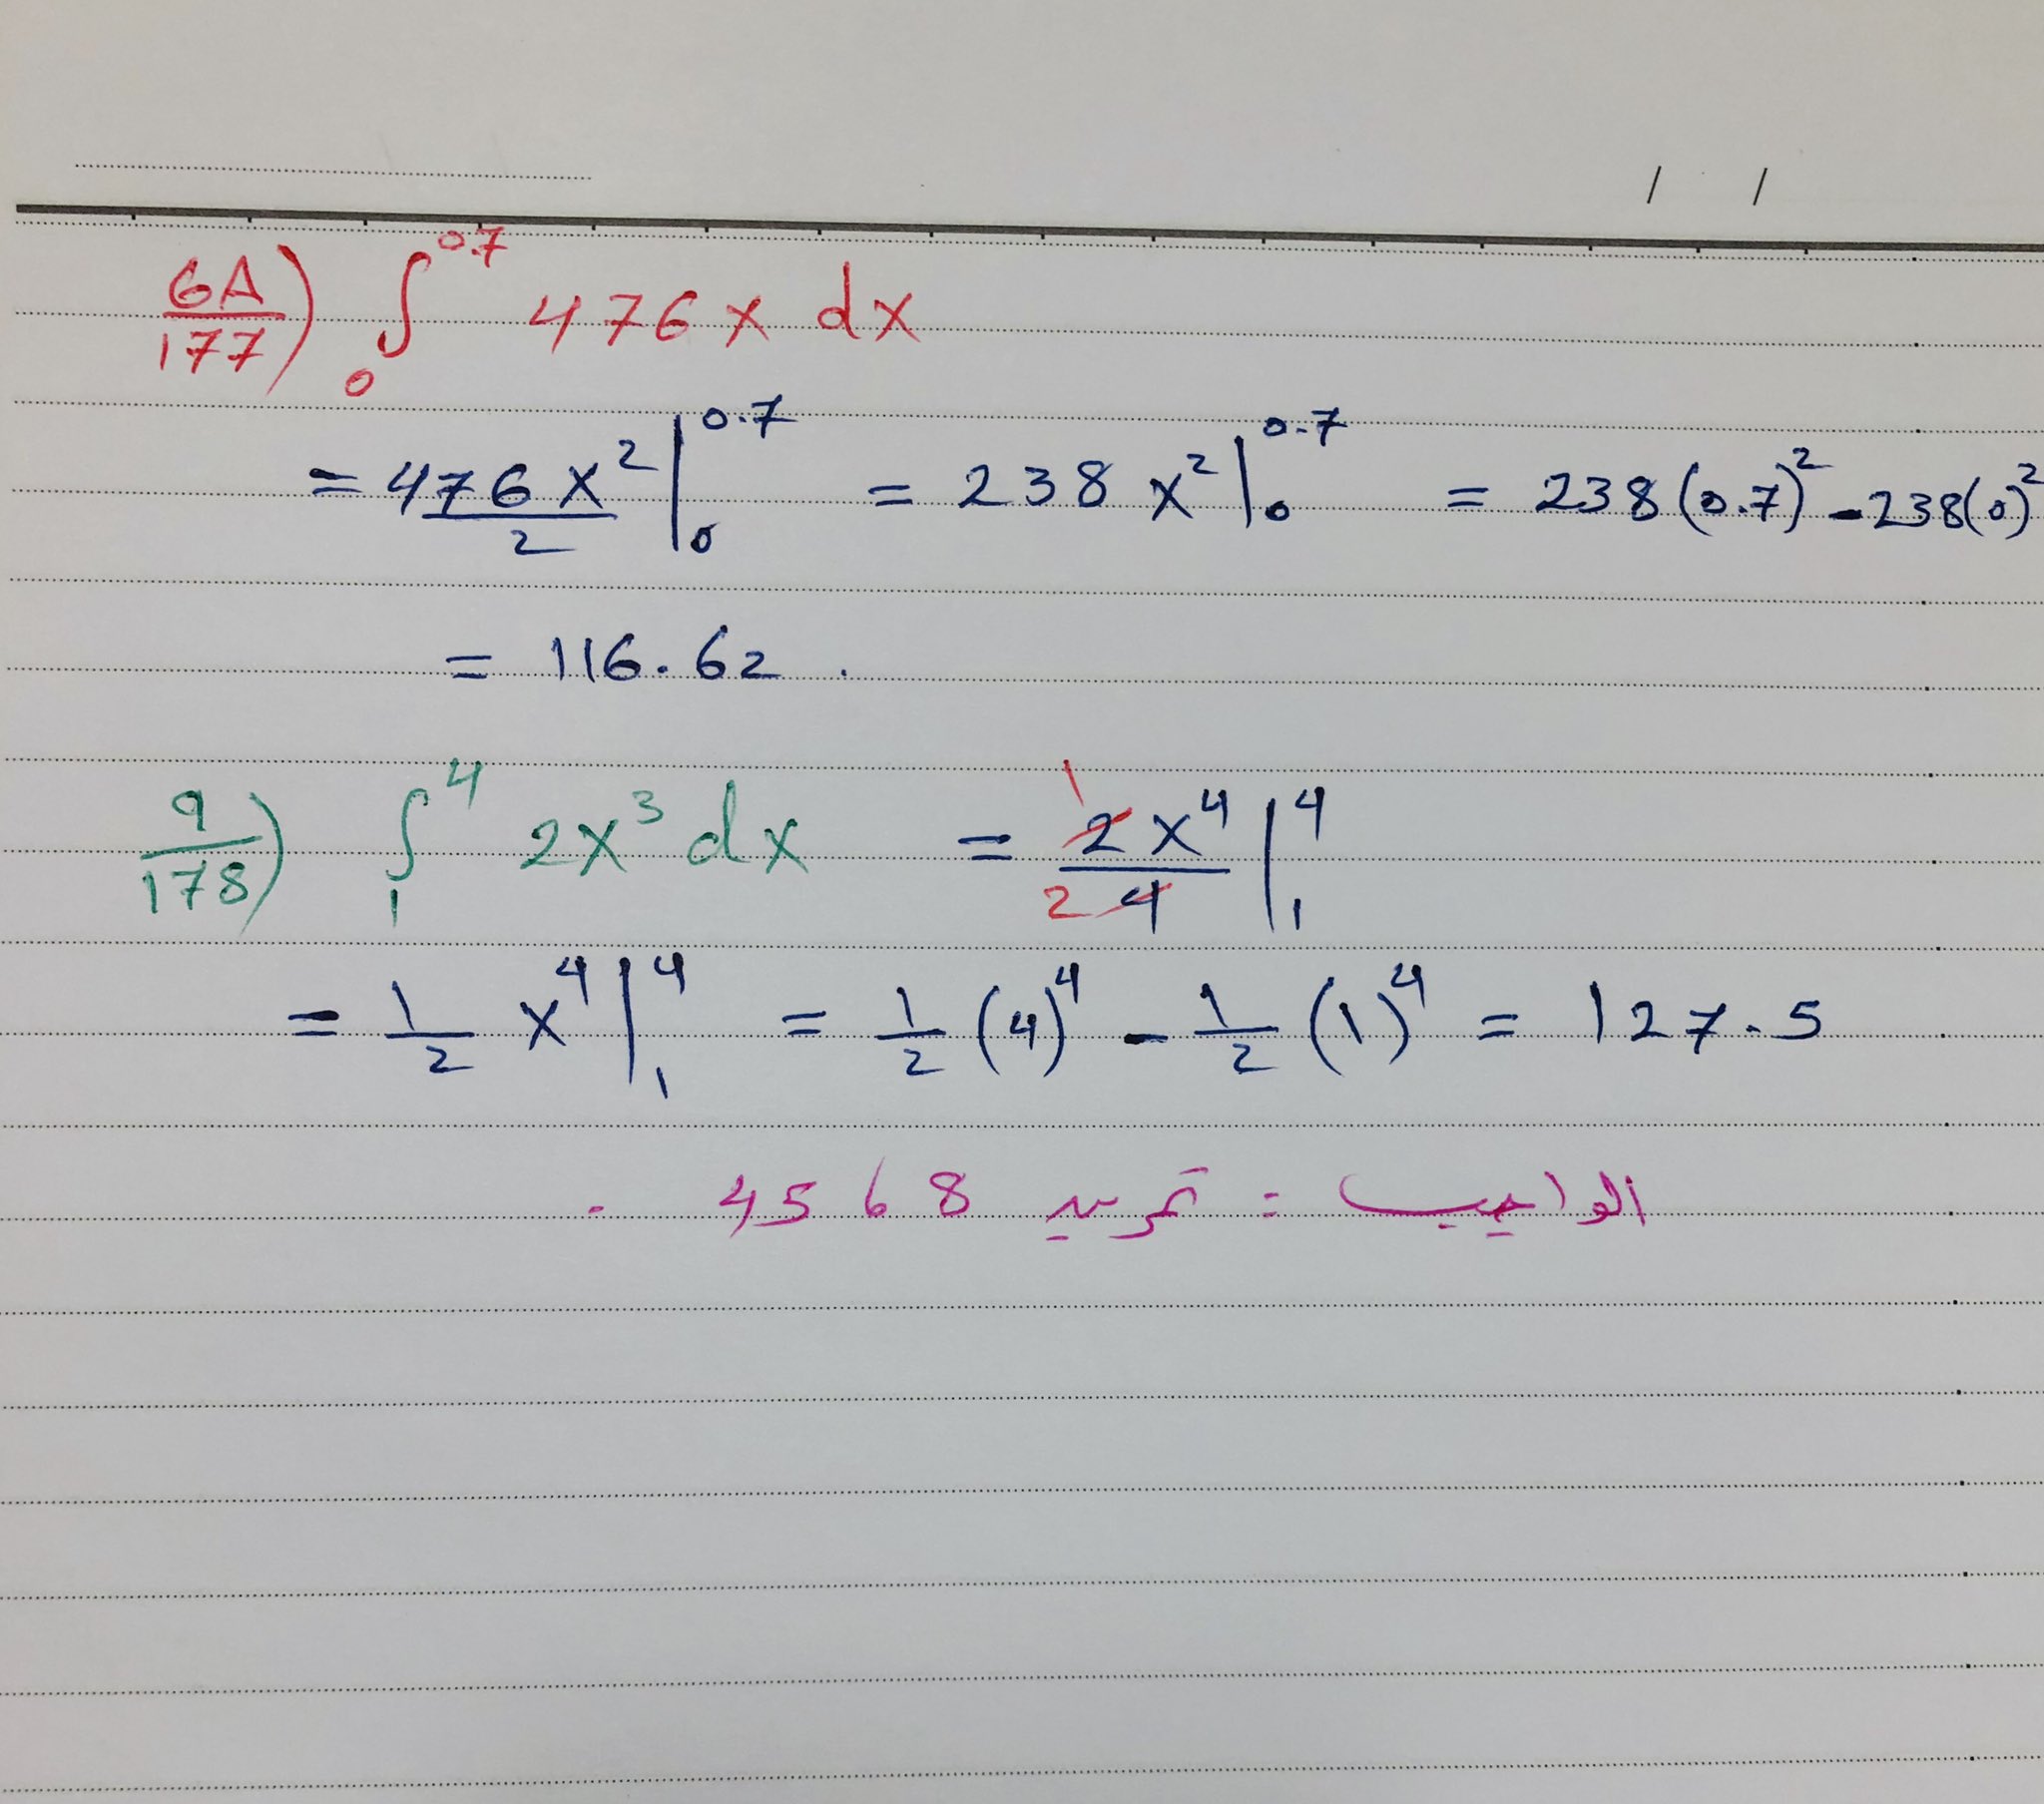 / /
6A/177) ∫₀^0.7 476x dx
= 476x²/2 |₀^0.7 = 238x² |₀^0.7 = 238(0.7)² - 238(0)²
= 116.62 .
9/178) ∫₁^4 2x³ dx = 1 2x⁴ / 2 4 |₁^4
= 1/2 x⁴ |₁^4 = 1/2 (4)⁴ - 1/2 (1)⁴ = 127.5
الواجب : تمرين 8 6 5 4 .